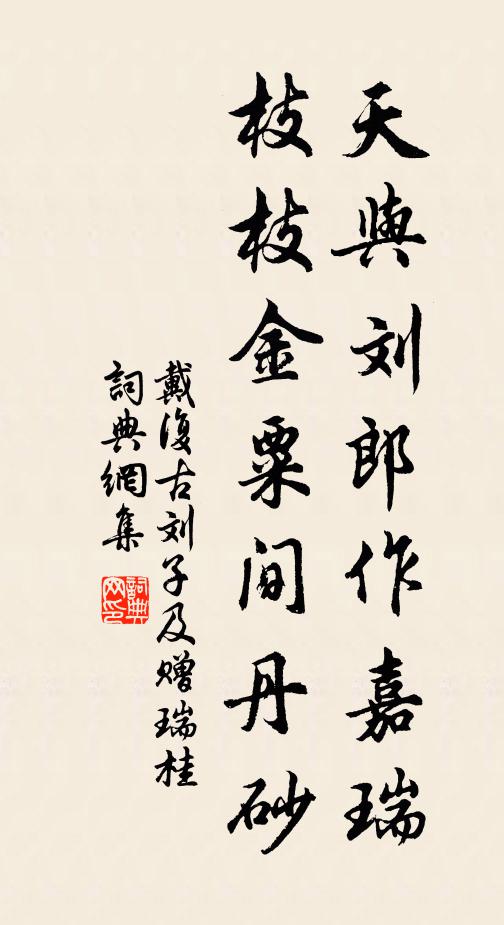 天與刘郎作嘉瑞
枝枝金粟间丹砂
戴復古刘子及赠瑞桂
詞典網集
詞典
网印